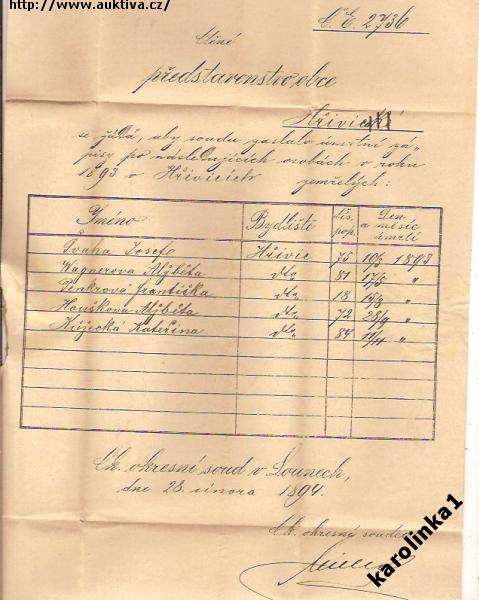 http://www.auktiva.cz/
Č.E. 2736
Ctěné
představenstvo obce
Hřivické
se žádá, aby soudu zaslalo úmrtní zá-
pisy po následujících osobách v roku
1893 v Hřivicích zemřelých:
Jméno Bydliště čís. pop. Den a měsíc úmrtí
Švaha Josef Hřivic 75 10/5 1893
Wagnerova Alžběta dto 81 17/5 "
Penkrová Františka dto 18 15/8 "
Houškova Alžběta dto 72 28/9 "
Kateřina dto 84 "
C.k. okresní soud v Lounech,
dne 28. února 1894.
C.k. okresný soudce
karolinka1